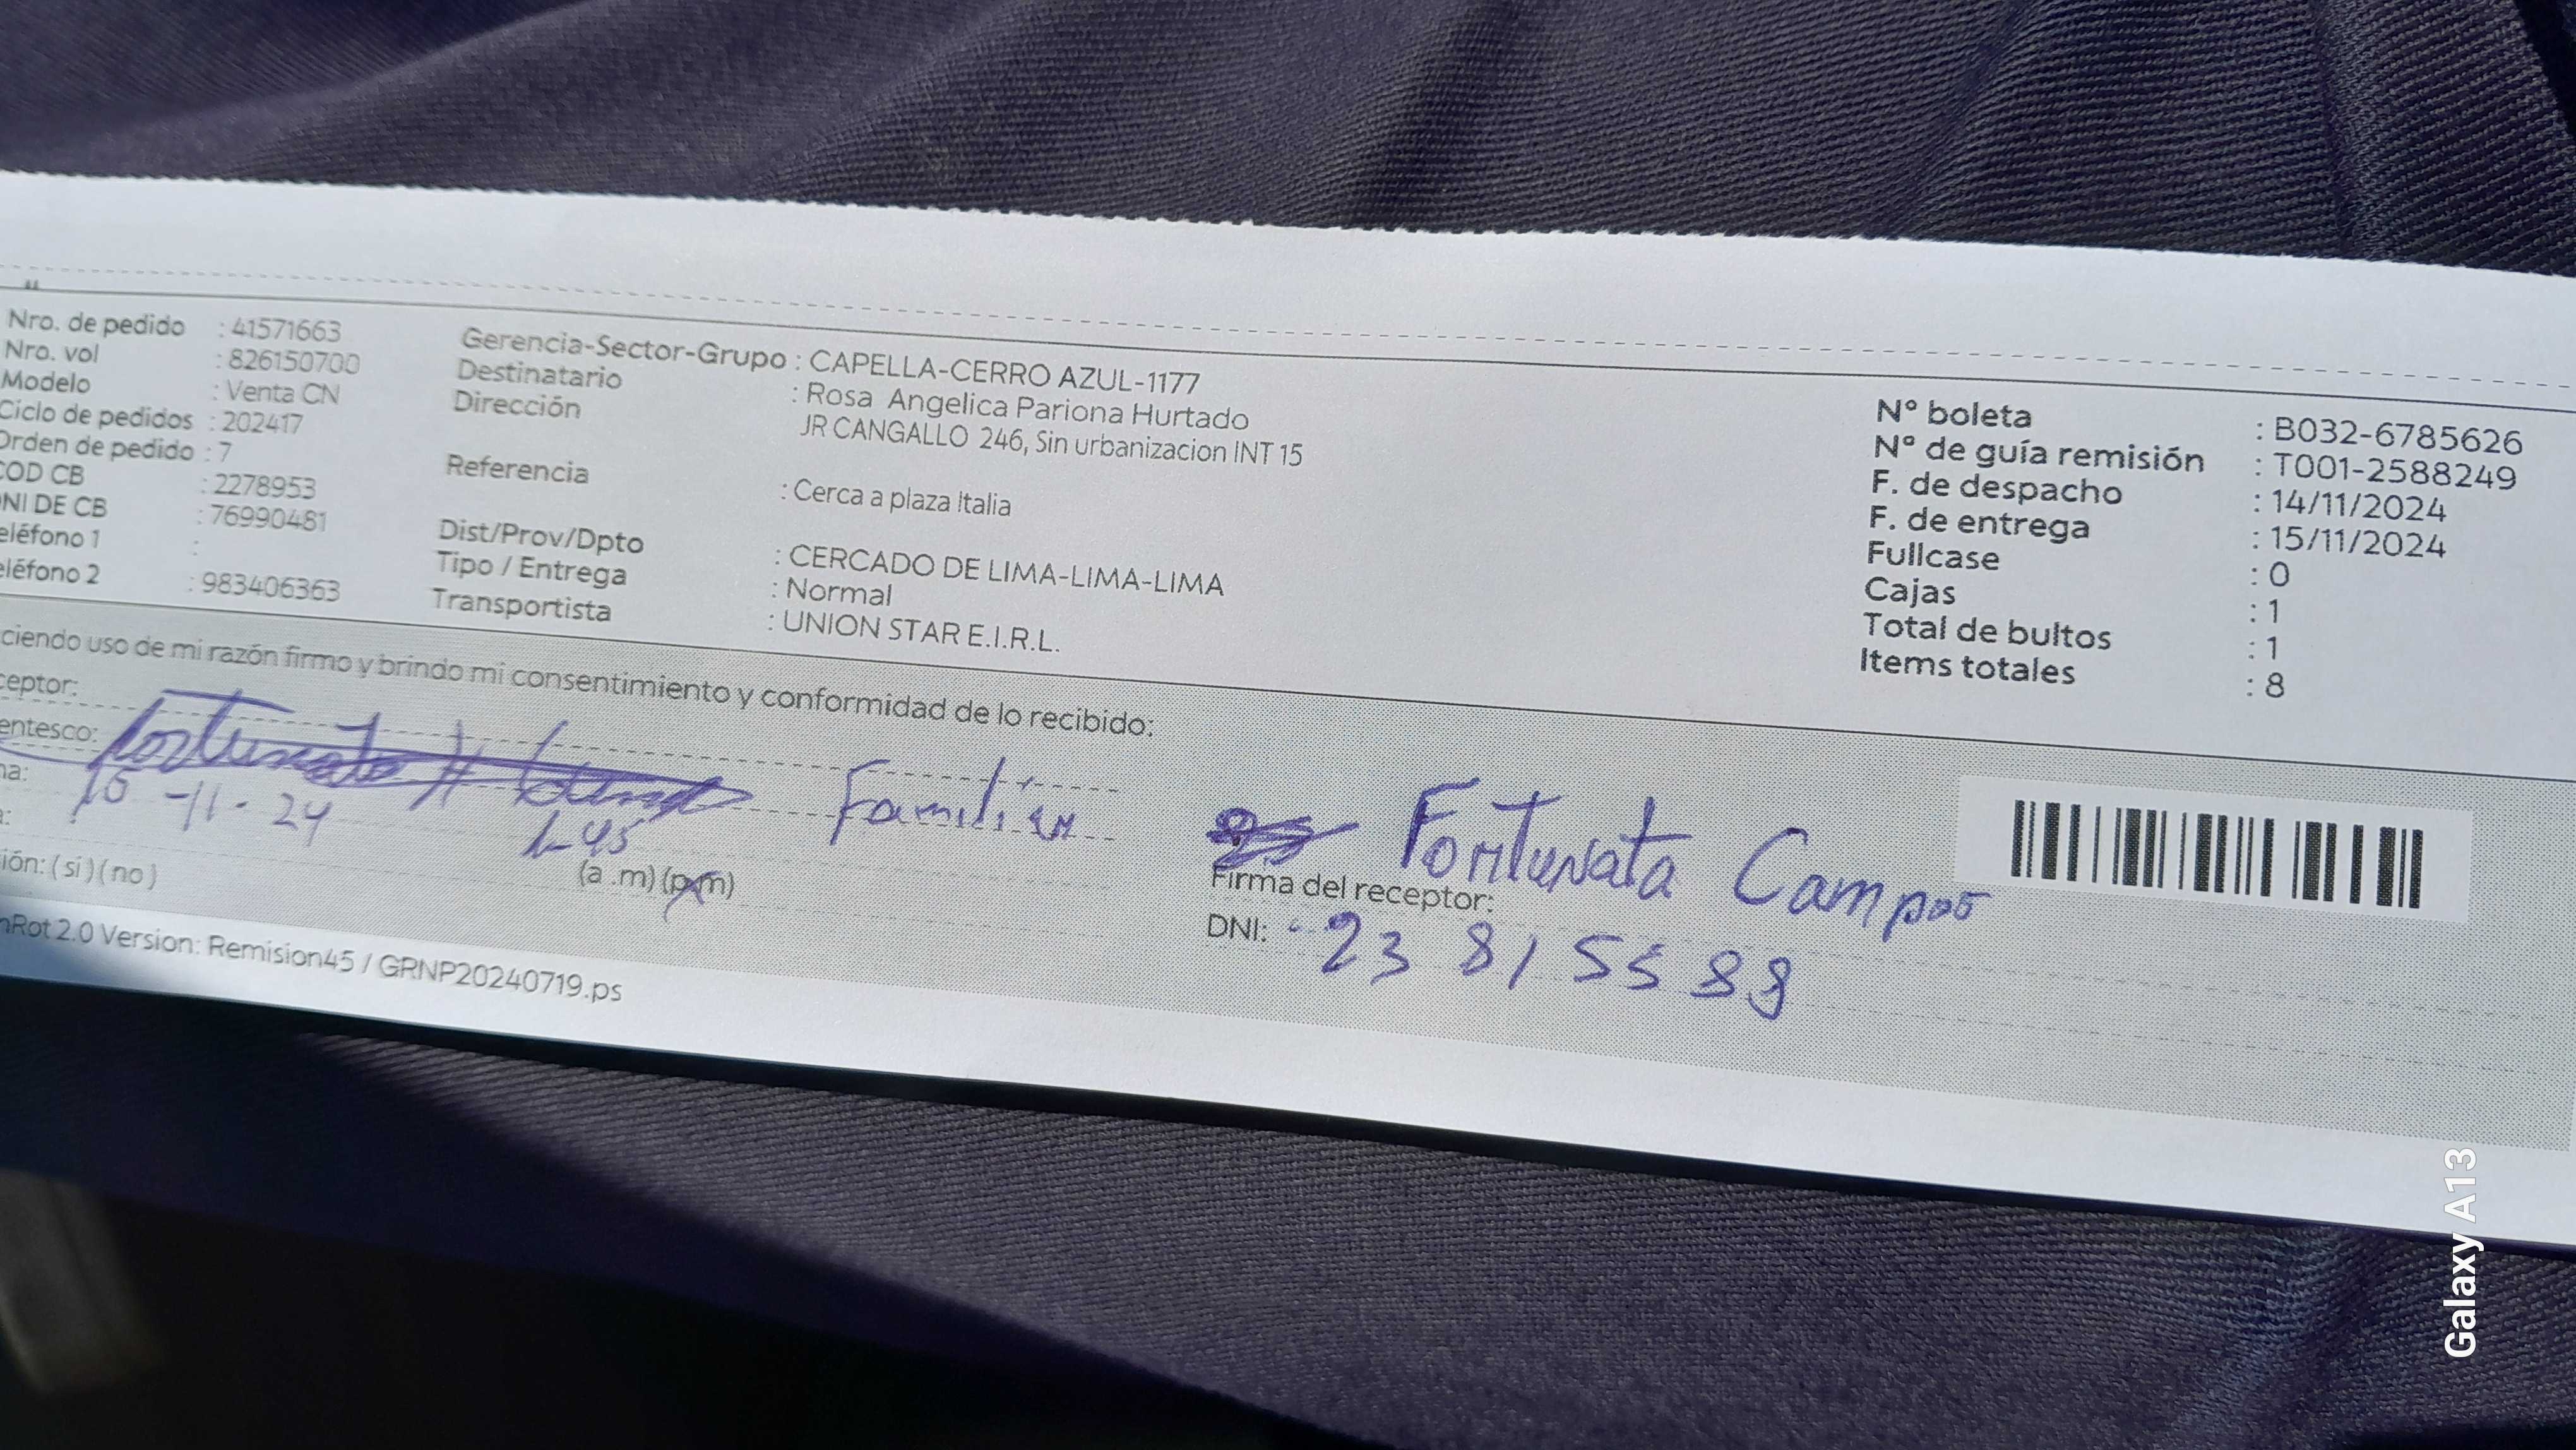 Nro. de pedido : 41571663
Nro. vol : 826150700
Modelo : Venta CN
Ciclo de pedidos : 202417
Orden de pedido : 7
COD CB : 2278953
NI DE CB : 76990481
eléfono 1 :
eléfono 2 : 983406363
Gerencia-Sector-Grupo : CAPELLA-CERRO AZUL-1177
Destinatario : Rosa Angelica Pariona Hurtado
Dirección JR CANGALLO 246, Sin urbanizacion INT 15
Referencia : Cerca a plaza Italia
Dist/Prov/Dpto : CERCADO DE LIMA-LIMA-LIMA
Tipo / Entrega : Normal
Transportista : UNION STAR E.I.R.L.
N° boleta : B032-6785626
N° de guía remisión : T001-2588249
F. de despacho : 14/11/2024
F. de entrega : 15/11/2024
Fullcase : 0
Cajas : 1
Total de bultos : 1
Items totales : 8
ciendo uso de mi razón firmo y brindo mi consentimiento y conformidad de lo recibido:
ceptor:
entesco: Familiar
ha: 15-11-24
a: 1-45 (a.m) (p.m)
ión: (sí) (no)
Fortunata Campos
Firma del receptor:
DNI: 23815588
nRot 2.0 Version: Remision45 / GRNP20240719.ps
Galaxy A13